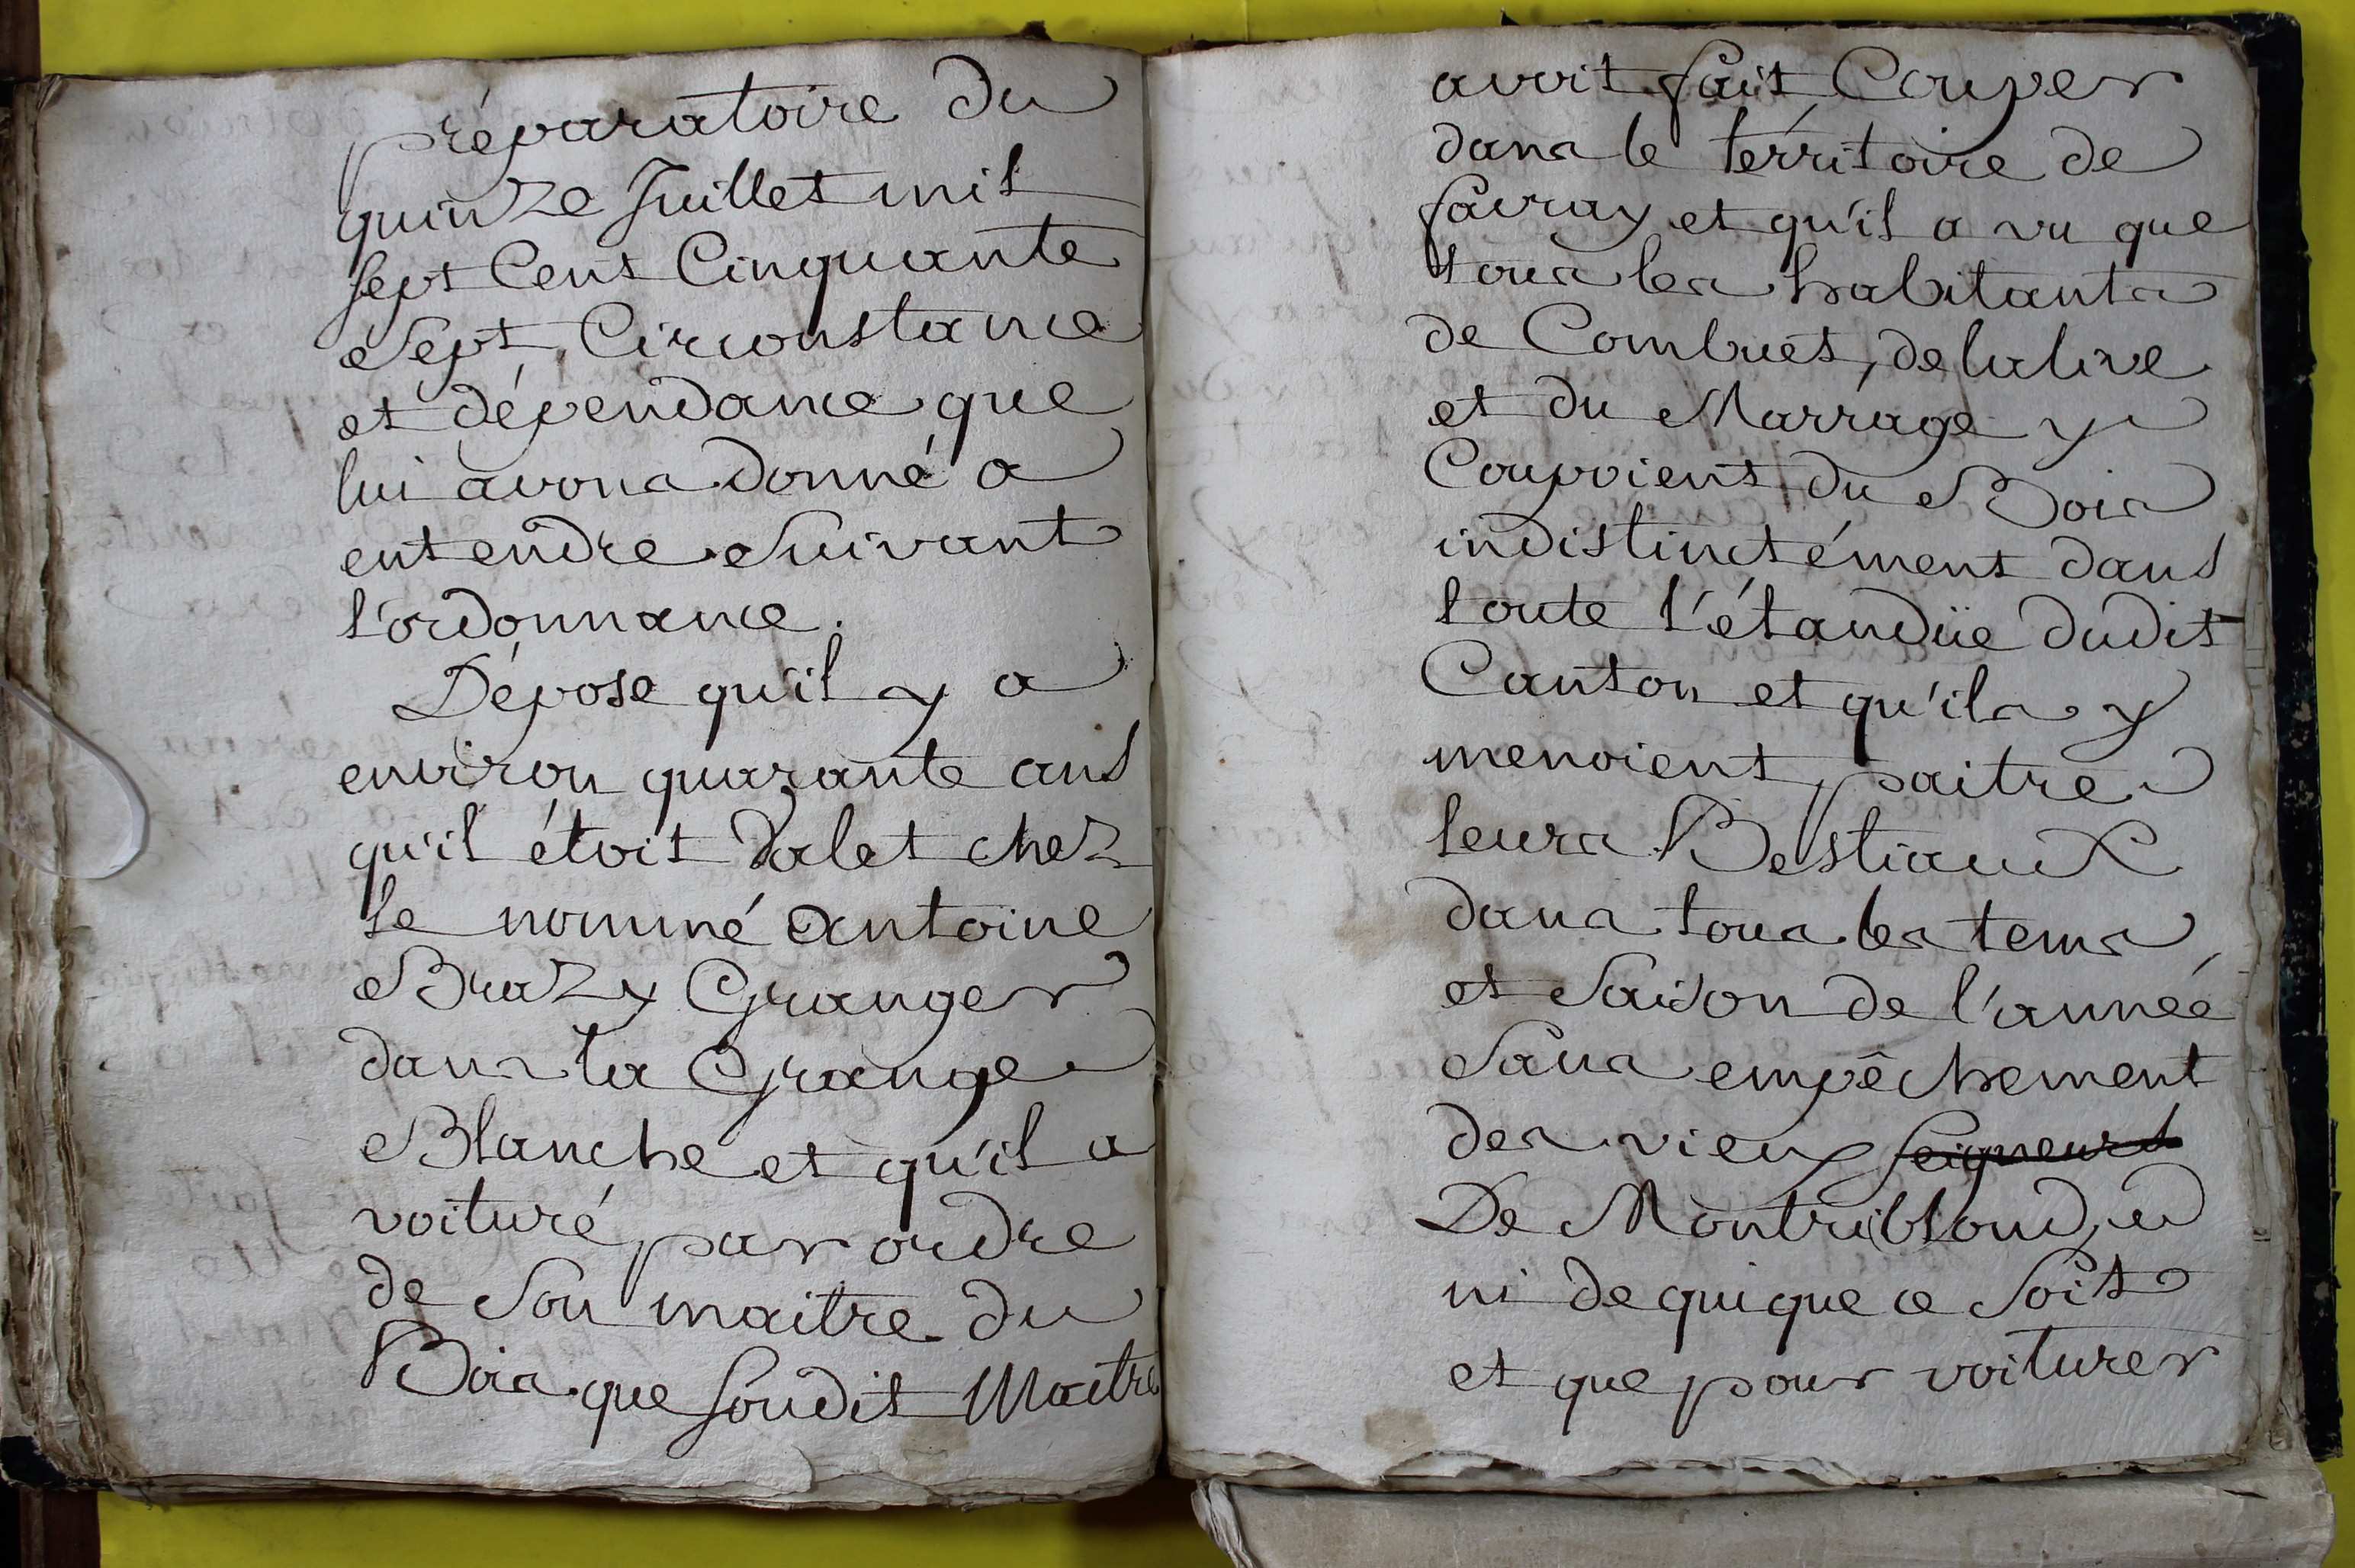 préparatoire du
quinze Juillet mil
sept Cent Cinquante
Sept, Circonstance
et dépendance que
lui avons donné a
entendre Suivant
l'ordonnance.
Dépose qu'il y a
environ quarante ans
qu'il étoit Valet chez
le nommé antoine
Brazy Granger
dans la Grange
Blanche et qu'il a
voituré par ordre
de Son maitre du
Bois que sondit Maitre
avoit fait Couper
dans le térritoire de
favray et qu'il a vu que
tous les habitants
de Combues, de lalive
et du Marrage y
Coupoient du Bois
indistinctément dans
toute l'étandüe dudit
Canton et qu'ils y
menoient paitre
leurs Bestiaux
dans tous les tems
et Saison de l'année
Sans empêchement
des vieux seigneurs
De Montribloud,
ni de qui que ce Soit
et que pour voiturer